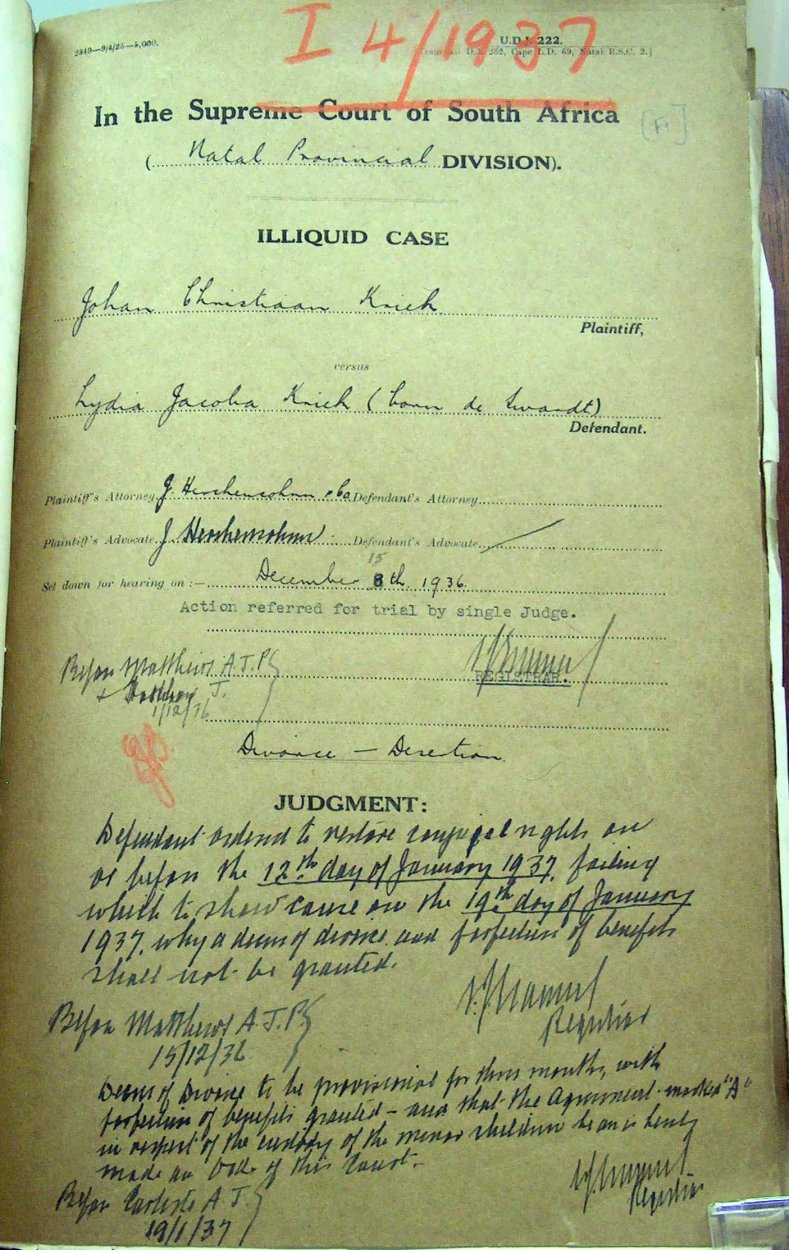 I 4/1937
2849—9/4/25—5,000.
U.D.J. 222.
D.J. 252, Cape L.D. 69, Natal R.S.C. 2.]
In the Supreme Court of South Africa
(Natal Provincial DIVISION).
ILLIQUID CASE
Johan Christiaan Kriek
Plaintiff,
versus
Lydia Jacoba Kriek (born de Swardt)
Defendant.
Plaintiff's Attorney J. Herchensohnn & Co Defendant's Attorney
Plaintiff's Advocate J Herchensohnn Defendant's Advocate
15
Set down for hearing on :— December 8th 1936
Action referred for trial by single Judge.
Before Matthews A.J.P.
& Hathorn J.
REGISTRAR.
1/12/36
Divorce — Desertion.
JUDGMENT:
Defendant ordered to restore conjugal rights on
or before the 12th day of January 1937, failing
which to show cause on the 19th day of January
1937, why a decree of divorce and forfeiture of benefits
shall not be granted.
Before Matthews A.J.P.
Registrar
15/12/36
Decree of Divorce to be provisional for three months, with
forfeiture of benefits granted – and that the Agreement marked "A"
in respect of the custody of the minor children be an is hereby
made an Order of this Court.
Registrar
Before Carlisle A.J.
19/1/37